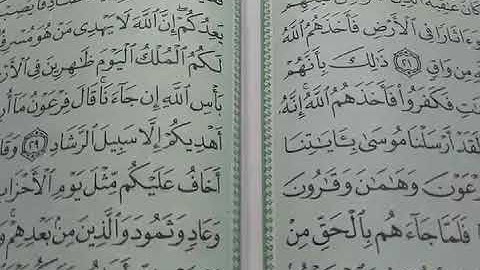 وَءَاثَارًا فِى ٱلْأَرْضِ فَأَخَذَهُمُ ٱللَّهُ
مِن وَاقٍ ٢١ ذَٰلِكَ بِأَنَّهُمْ
فَكَفَرُوا۟ فَأَخَذَهُمُ ٱللَّهُ إِنَّهُۥ
لَقَدْ أَرْسَلْنَا مُوسَىٰ بِـَٔايَٰتِنَا
عَوْنَ وَهَٰمَٰنَ وَقَٰرُونَ
فَلَمَّا جَآءَهُم بِٱلْحَقِّ مِنْ
بَعْدُكُمْ إِنَّ ٱللَّهَ لَا يَهْدِى مَنْ هُوَ مُسْرِفٌ
لَكُمُ ٱلْمُلْكُ ٱلْيَوْمَ ظَٰهِرِينَ فِى ٱلْأَرْ
بَأْسِ ٱللَّهِ إِن جَآءَنَا قَالَ فِرْعَوْنُ مَآ أُرِ
أَهْدِيكُمْ إِلَّا سَبِيلَ ٱلرَّشَادِ ٢٩ وَقَا
أَخَافُ عَلَيْكُم مِّثْلَ يَوْمِ ٱلْأَحْزَابِ
وَعَادٍ وَثَمُودَ وَٱلَّذِينَ مِنۢ بَعْدِهِمْ وَ